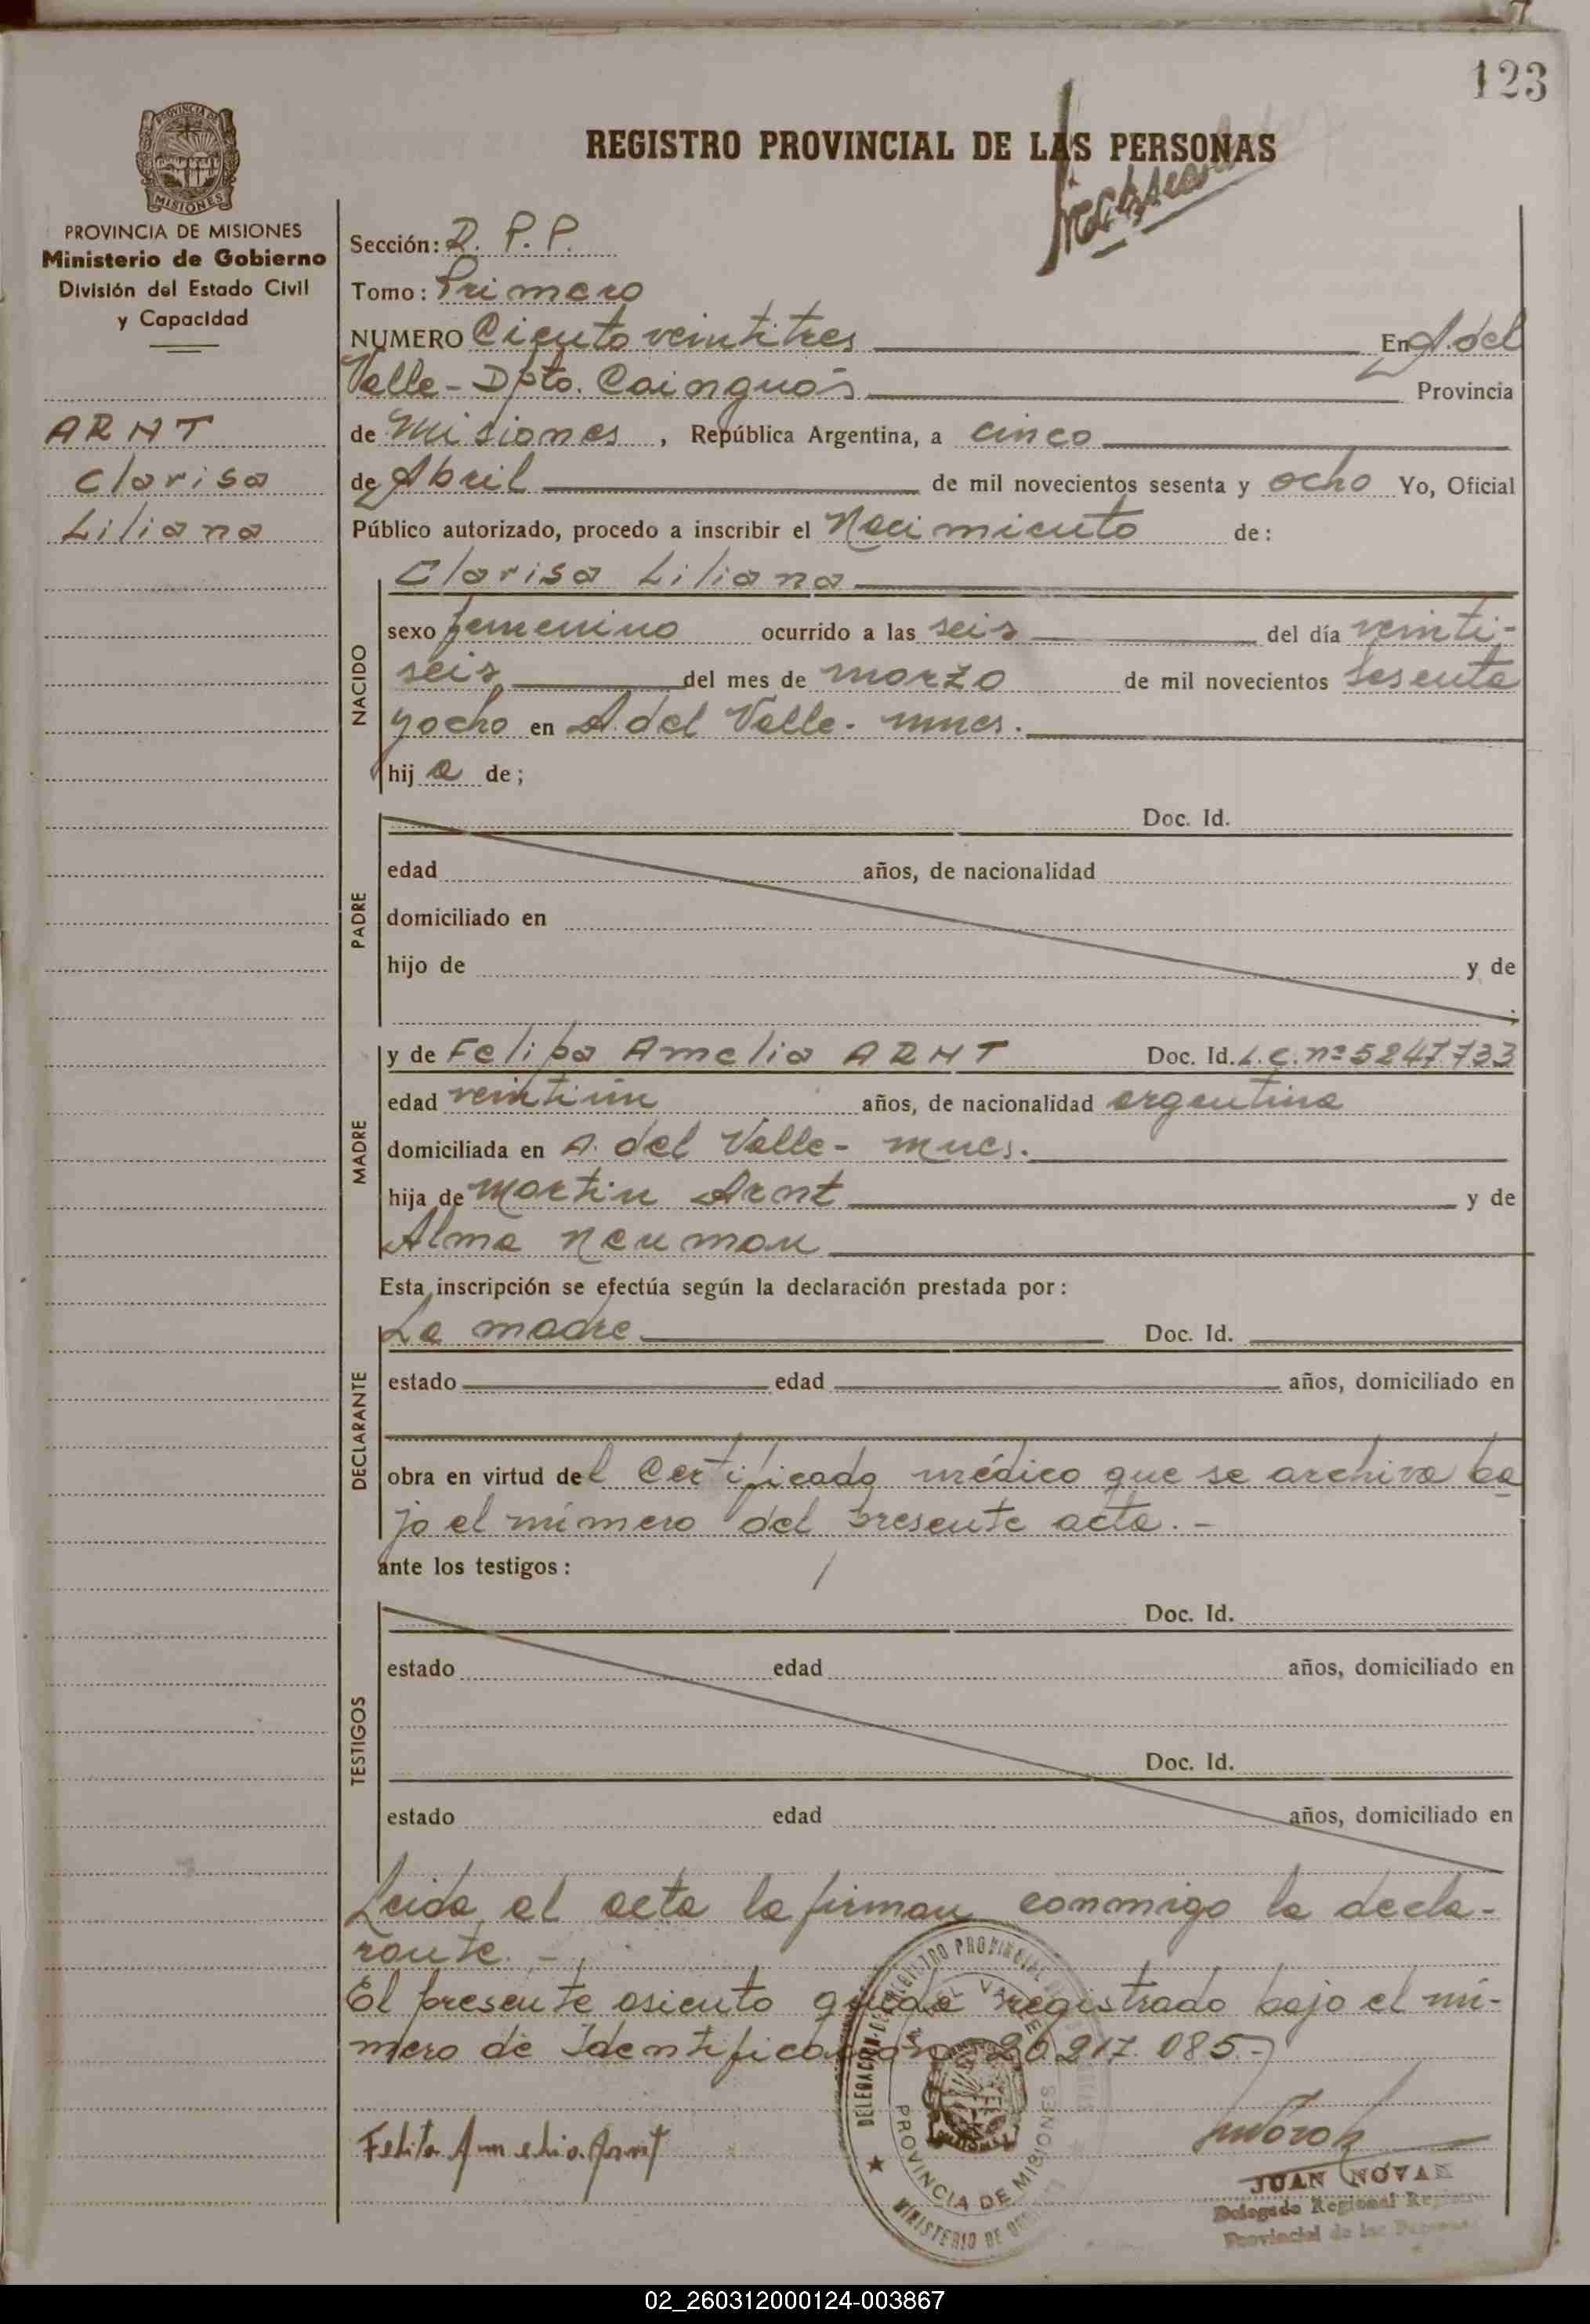 123
REGISTRO PROVINCIAL DE LAS PERSONAS
PROVINCIA DE
MISIONES
PROVINCIA DE MISIONES
Ministerio de Gobierno
División del Estado Civil
y Capacidad
ARNT
Clarisa
Liliana
Sección: D. P. P.
Tomo: Primero
NUMERO Ciento veintitres En A. del
Valle - Dpto. Cainguás Provincia
de Misiones, República Argentina, a cinco
de Abril de mil novecientos sesenta y ocho Yo, Oficial
Público autorizado, procedo a inscribir el Nacimiento de:
NACIDO
Clarisa Liliana
sexo femenino ocurrido a las seis del día veinti-
seis del mes de marzo de mil novecientos sesenta
y ocho en A. del Valle - mnes.
hija de;
PADRE
Doc. Id.
edad años, de nacionalidad
domiciliado en
hijo de y de
MADRE
y de Felipa Amelia ARNT Doc. Id. L.C. nº 5247.733
edad veintiún años, de nacionalidad argentina
domiciliada en A. del Valle - mnes.
hija de Martin Arnt y de
Alma Neuman
Esta inscripción se efectúa según la declaración prestada por:
DECLARANTE
La madre Doc. Id.
estado edad años, domiciliado en
obra en virtud del Certificado médico que se archiva ba
jo el número del presente acta. -
ante los testigos:
TESTIGOS
Doc. Id.
estado edad años, domiciliado en
Doc. Id.
estado edad años, domiciliado en
Leida el acta la firman conmigo la decla-
rante. -
El presente asiento queda registrado bajo el nú-
mero de Identificación 20.217.085.-
DELEGACION DEL REGISTRO PROVINCIAL
A. DEL VALLE
PROVINCIA DE MISIONES
MINISTERIO DE
Felipa Amelia Arnt
JUAN NOVAK
Delegado Regional Registro
Provincial de las Personas
02_260312000124-003867